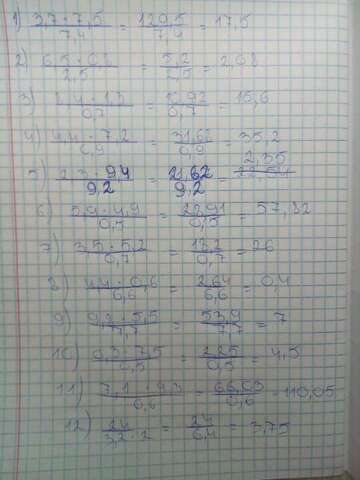 1) 3,7 · 7,5 / 7,4 = 129,5 / 7,4 = 17,5
2) 6,5 · 0,8 / 2,5 = 5,2 / 2,5 = 2,08
3) 8,4 · 1,3 / 0,7 = 10,92 / 0,7 = 15,6
4) 4,4 · 7,2 / 0,9 = 31,68 / 0,9 = 35,2
5) 2,3 · 9,4 / 9,2 = 21,62 / 9,2 = 2,35
6) 5,9 · 4,9 / 0,5 = 28,91 / 0,5 = 57,82
7) 3,5 · 5,2 / 0,7 = 18,2 / 0,7 = 26
8) 4,4 · 0,6 / 6,6 = 2,64 / 6,6 = 0,4
9) 9,8 · 5,5 / 7,7 = 53,9 / 7,7 = 7
10) 0,3 · 7,5 / 0,5 = 2,25 / 0,5 = 4,5
11) 7,1 · 9,3 / 0,6 = 66,03 / 0,6 = 110,05
12) 24 / 3,2 · 2 = 24 / 6,4 = 3,75